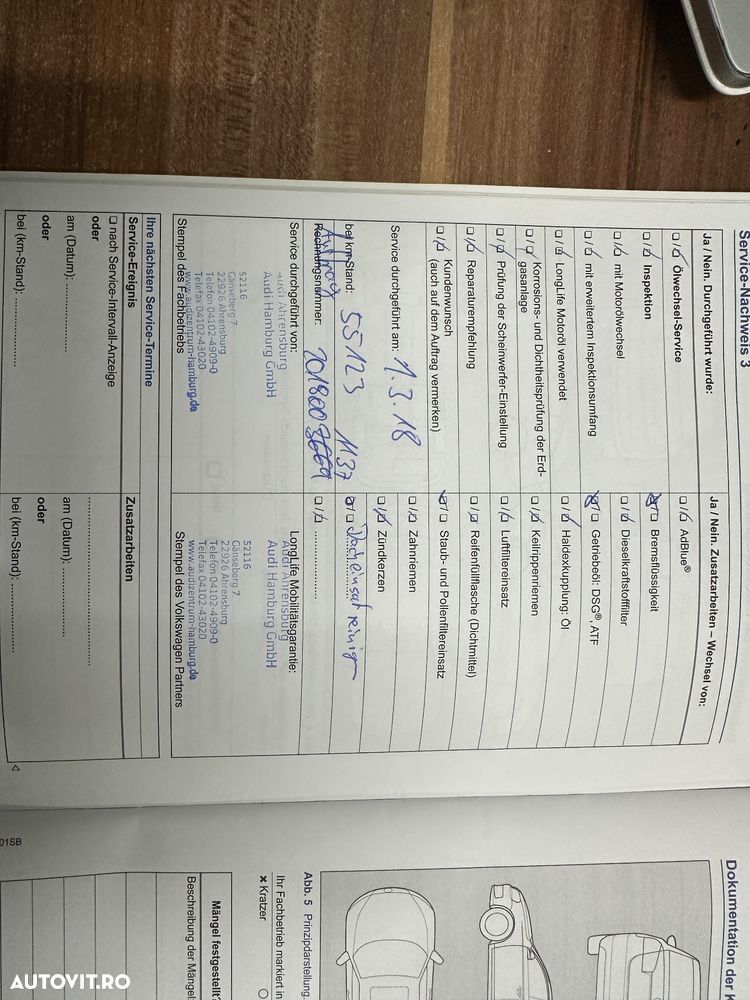 Service-Nachweis 3
Ja / Nein. Durchgeführt wurde:
Ölwechsel-Service
Inspektion
mit Motorölwechsel
mit erweitertem Inspektionsumfang
LongLife Motoröl verwendet
Korrosions- und Dichtheitsprüfung der Erd-
gasanlage
Prüfung der Scheinwerfer-Einstellung
Reparaturempfehlung
Kundenwunsch
(auch auf dem Auftrag vermerken)
Service durchgeführt am: 1.3.18
bei km-Stand: 55123 1137
Rechnungsnummer:
Auftrag
Service durchgeführt von:
Audi Ahrensburg
Audi Hamburg GmbH
52116
Gänseberg 7
22926 Ahrensburg
Telefon 04102-4909-0
Telefax 04102-43020
www.audizentrum-hamburg.de
Stempel des Fachbetriebs
Ja / Nein. Zusatzarbeiten – Wechsel von:
AdBlue®
Bremsflüssigkeit
Dieselkraftstofffilter
Getriebeöl: DSG®, ATF
Haldexkupplung: Öl
Keilrippenriemen
Luftfiltereinsatz
Reifenfüllflasche (Dichtmittel)
Staub- und Pollenfiltereinsatz
Zahnriemen
Zündkerzen
Dacheinsatz reinigen
LongLife Mobilitätsgarantie:
Audi Ahrensburg
Audi Hamburg GmbH
52116
Gänseberg 7
22926 Ahrensburg
Telefon 04102-4909-0
Telefax 04102-43020
www.audizentrum-hamburg.de
Stempel des Volkswagen Partners
Ihre nächsten Service-Termine
Service-Ereignis
nach Service-Intervall-Anzeige
oder
am (Datum):
oder
bei (km-Stand):
Zusatzarbeiten
am (Datum):
oder
bei (km-Stand):
01SB
Dokumentation der K
Abb. 5 Prinzipdarstellung.
Ihr Fachbetrieb markiert in
× Kratzer
Mängel festgestellt?
Beschreibung der Mängel
AUTOVIT.RO